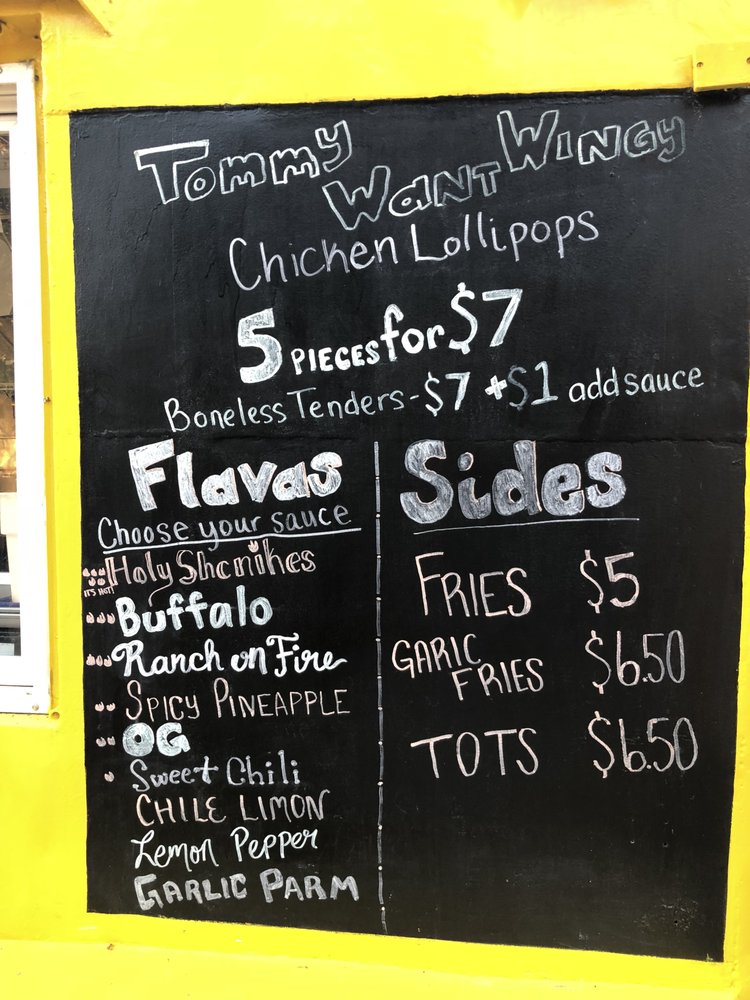 Tommy Want Wingy
Chicken Lollipops
5 PIECES for $7
Boneless Tenders - $7 + $1 add sauce
Flavas
Choose your sauce
Holy Shcnikes
IT'S HOT!
Buffalo
Ranch on Fire
SPICY PINEAPPLE
OG
Sweet Chili
CHILE LIMON
Lemon Pepper
GARLIC PARM
Sides
FRIES $5
GARIC FRIES $6.50
TOTS $6.50